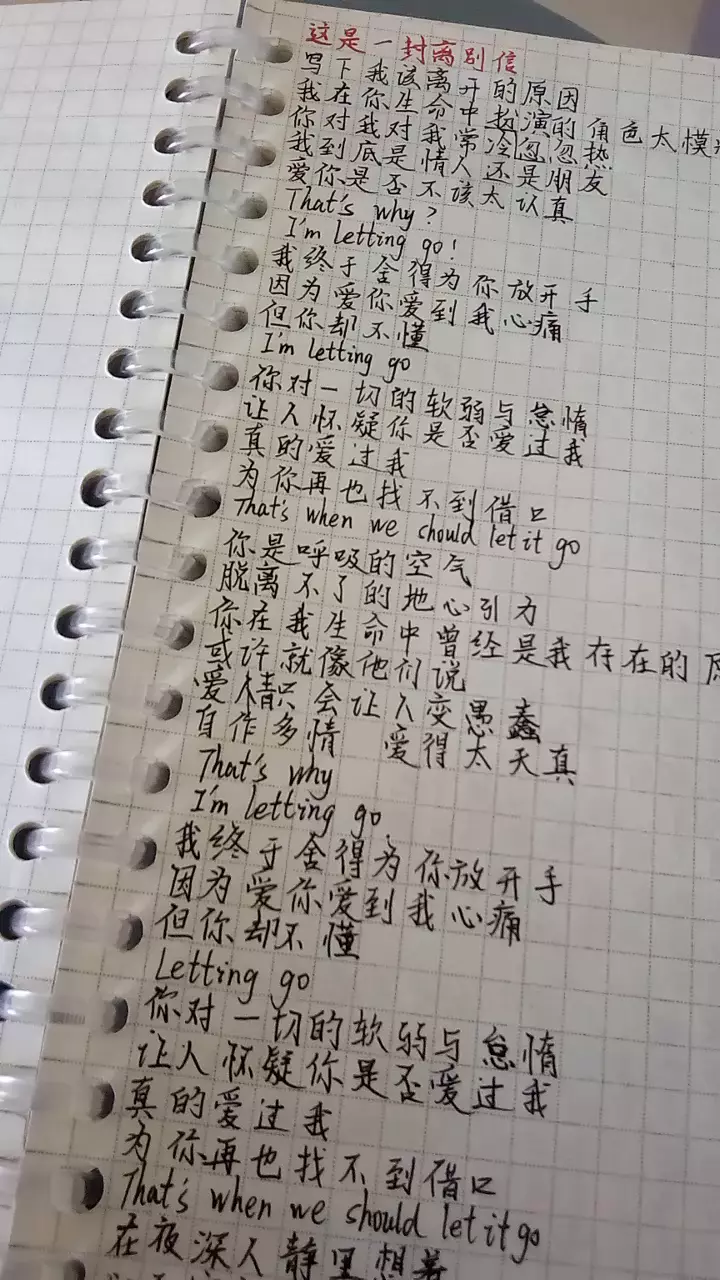 这是一封离别信
写下我该离开的原因
我在你生命中扮演的角色太模
你对我对我常冷忽忽热
我到底是情人还是朋友
爱你是否不该太认真
That's why?
I'm letting go!
我终于舍得为你放开手
因为爱你爱到我心痛
但你却不懂
I'm letting go
你对一切的软弱与怠惰
让人怀疑你是否爱过我
真的爱过我
为你再也找不到借口
That's when we should let it go
你是呼吸的空气
脱离不了的地心引力
你在我生命中曾经是我存在的原
或许就像他们说
爱情只会让人变愚蠢
自作多情 爱得太天真
That's why
I'm letting go
我终于舍得为你放开手
因为爱你爱到我心痛
但你却不懂
Letting go
你对一切的软弱与怠惰
让人怀疑你是否爱过我
真的爱过我
为你再也找不到借口
That's when we should let it go
在夜深人静里想着